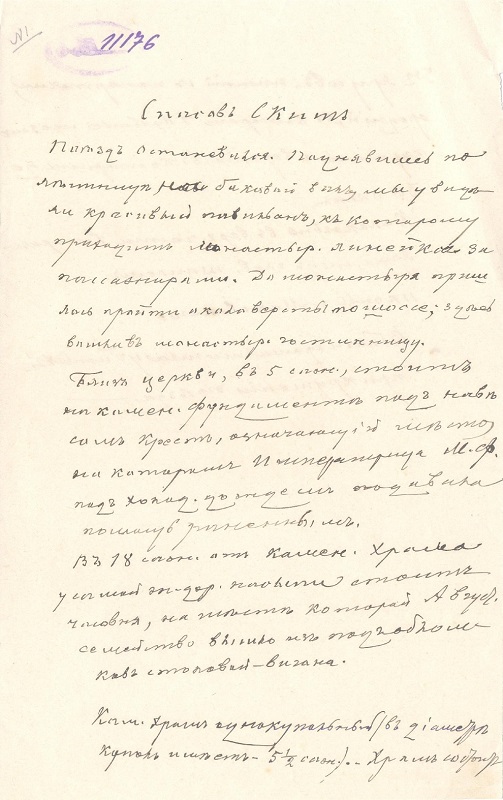 №1
11176
Спасовъ Скитъ
Поѣздъ остановился. Поднявшись по
лѣстницѣ на боковой въѣздъ мы увидѣ
ли красивый павильонъ, къ которому
приходитъ монастыр. линейка за
пассажирами. До монастыря приш
лось пройти около версты по шоссе; здѣсь
вошли въ монастыр. гостинницу.
Близь церкви, въ 5 саж., стоитъ
на камен. фундаментѣ подъ навѣ
сомъ крестъ, означающій мѣсто,
на которомъ Императрица М. Ф.
подъ холод. дождемъ подавала
помощь раненнымъ.
Въ 18 саж. отъ камен. храма
у самой ж-дор. насыпи стоитъ
часовня, на мѣстѣ которой Август.
семейство вышло изъ подъ облом-
ковъ столовой-вагона.
Кам. храмъ однокупольный (въ діаметрѣ
куполъ имѣетъ - 5 ½ саж.). - Храмъ